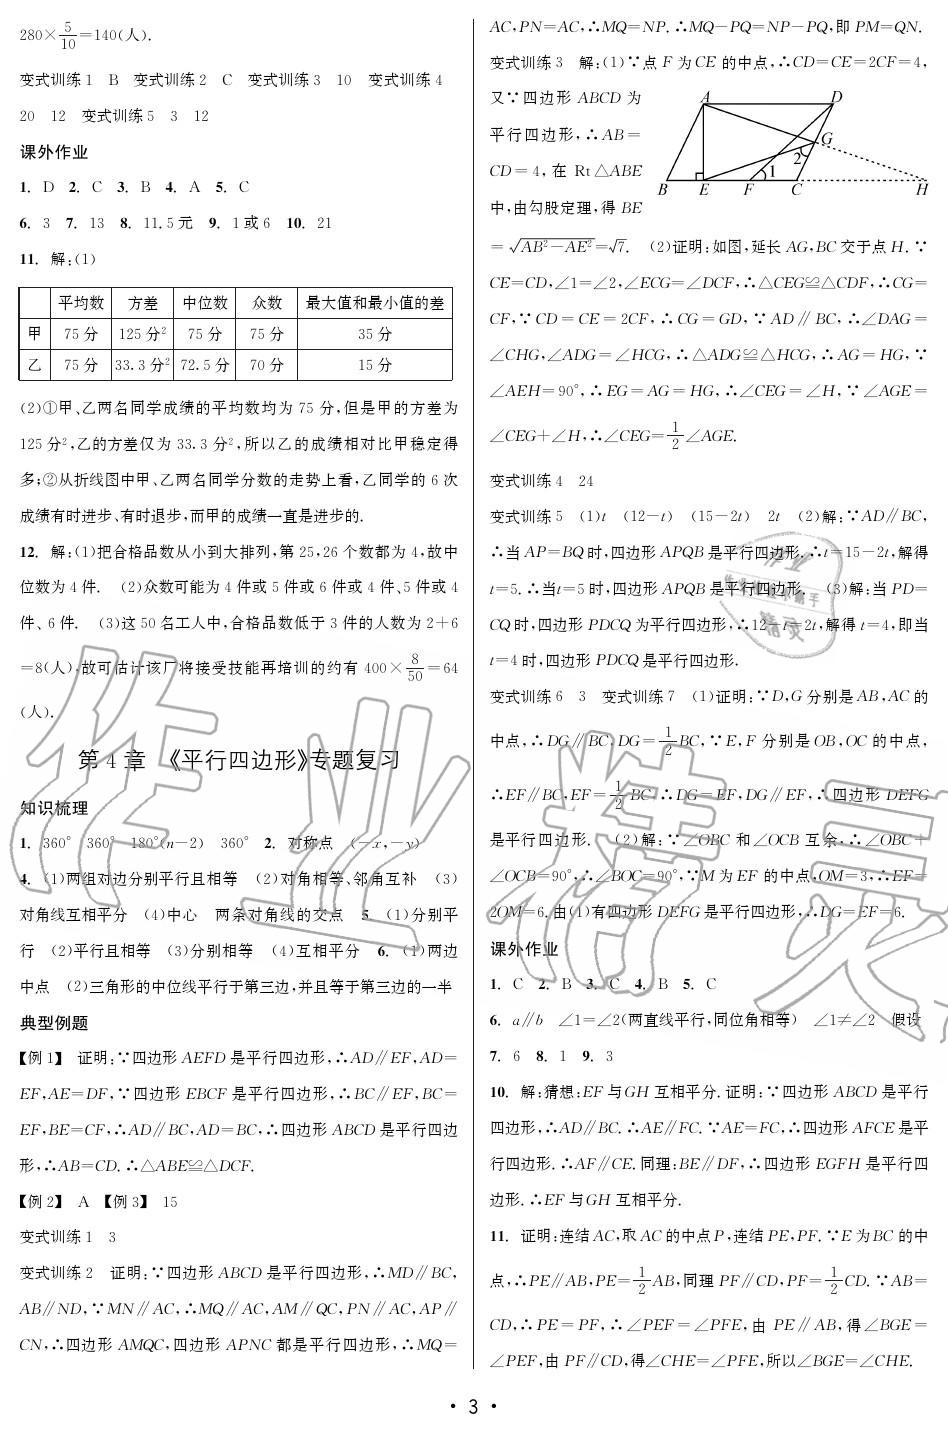 280×5/10=140(人).
变式训练1 B 变式训练2 C 变式训练3 10 变式训练4
20 12 变式训练5 3 12
课外作业
1. D 2. C 3. B 4. A 5. C
6. 3 7. 13 8. 11.5元 9. 1或6 10. 21
11. 解:(1)
平均数 方差 中位数 众数 最大值和最小值的差
甲 75分 125分² 75分 75分 35分
乙 75分 33.3分² 72.5分 70分 15分
(2)①甲、乙两名同学成绩的平均数均为75分,但是甲的方差为
125分²,乙的方差仅为33.3分²,所以乙的成绩相对比甲稳定得
多;②从折线图中甲、乙两名同学分数的走势上看,乙同学的6次
成绩有时进步、有时退步,而甲的成绩一直是进步的.
12. 解:(1)把合格品数从小到大排列,第25,26个数都为4,故中
位数为4件. (2)众数可能为4件或5件或6件或4件、5件或4
件、6件. (3)这50名工人中,合格品数低于3件的人数为2+6
=8(人),故可估计该厂将接受技能再培训的约有400×8/50=64
(人).
第4章 《平行四边形》专题复习
知识梳理
1. 360° 360° 180°(n-2) 360° 2. 对称点 (-x,-y)
4. (1)两组对边分别平行且相等 (2)对角相等、邻角互补 (3)
对角线互相平分 (4)中心 两条对角线的交点 5. (1)分别平
行 (2)平行且相等 (3)分别相等 (4)互相平分 6. (1)两边
中点 (2)三角形的中位线平行于第三边,并且等于第三边的一半
典型例题
【例1】 证明:∵四边形AEFD是平行四边形,∴AD∥EF,AD=
EF,AE=DF,∵四边形EBCF是平行四边形,∴BC∥EF,BC=
EF,BE=CF,∴AD∥BC,AD=BC,∴四边形ABCD是平行四边
形,∴AB=CD.∴△ABE≌△DCF.
【例2】 A 【例3】 15
变式训练1 3
变式训练2 证明:∵四边形ABCD是平行四边形,∴MD∥BC,
AB∥ND,∵MN∥AC,∴MQ∥AC,AM∥QC,PN∥AC,AP∥
CN,∴四边形AMQC,四边形APNC都是平行四边形,∴MQ=
AC,PN=AC,∴MQ=NP.∴MQ-PQ=NP-PQ,即PM=QN.
变式训练3 解:(1)∵点F为CE的中点,∴CD=CE=2CF=4,
又∵四边形ABCD为
平行四边形,∴AB=
CD=4,在Rt△ABE
中,由勾股定理,得BE
A D
G
1 2
B E F C H
=√(AB²-AE²)=√7. (2)证明:如图,延长AG,BC交于点H.∵
CE=CD,∠1=∠2,∠ECG=∠DCF,∴△CEG≌△CDF,∴CG=
CF,∵CD=CE=2CF,∴CG=GD,∵AD∥BC,∴∠DAG=
∠CHG,∠ADG=∠HCG,∴△ADG≌△HCG,∴AG=HG,∵
∠AEH=90°,∴EG=AG=HG,∴∠CEG=∠H,∵∠AGE=
∠CEG+∠H,∴∠CEG=1/2∠AGE.
变式训练4 24
变式训练5 (1)t (12-t) (15-2t) 2t (2)解:∵AD∥BC,
∴当AP=BQ时,四边形APQB是平行四边形.∴t=15-2t,解得
t=5.∴当t=5时,四边形APQB是平行四边形. (3)解:当PD=
CQ时,四边形PDCQ为平行四边形,∴12-t=2t,解得t=4,即当
t=4时,四边形PDCQ是平行四边形.
变式训练6 3 变式训练7 (1)证明:∵D,G分别是AB,AC的
中点,∴DG∥BC,DG=1/2BC,∵E,F分别是OB,OC的中点,
∴EF∥BC,EF=1/2BC,∴DG=EF,DG∥EF,∴四边形DEFG
是平行四边形. (2)解:∵∠OBC和∠OCB互余,∴∠OBC+
∠OCB=90°,∴∠BOC=90°,∵M为EF的中点,OM=3,∴EF=
2OM=6.由(1)有四边形DEFG是平行四边形,∴DG=EF=6.
课外作业
1. C 2. B 3. C 4. B 5. C
6. a∥b ∠1=∠2(两直线平行,同位角相等) ∠1≠∠2 假设
7. 6 8. 1 9. 3
10. 解:猜想:EF与GH互相平分.证明:∵四边形ABCD是平行
四边形,∴AD∥BC.∴AE∥FC.∵AE=FC,∴四边形AFCE是平
行四边形.∴AF∥CE.同理:BE∥DF,∴四边形EGFH是平行四
边形.∴EF与GH互相平分.
11. 证明:连结AC,取AC的中点P,连结PE,PF.∵E为BC的中
点,∴PE∥AB,PE=1/2AB,同理PF∥CD,PF=1/2CD.∵AB=
CD,∴PE=PF,∴∠PEF=∠PFE,由PE∥AB,得∠BGE=
∠PEF,由PF∥CD,得∠CHE=∠PFE,所以∠BGE=∠CHE.
· 3 ·
作业精灵